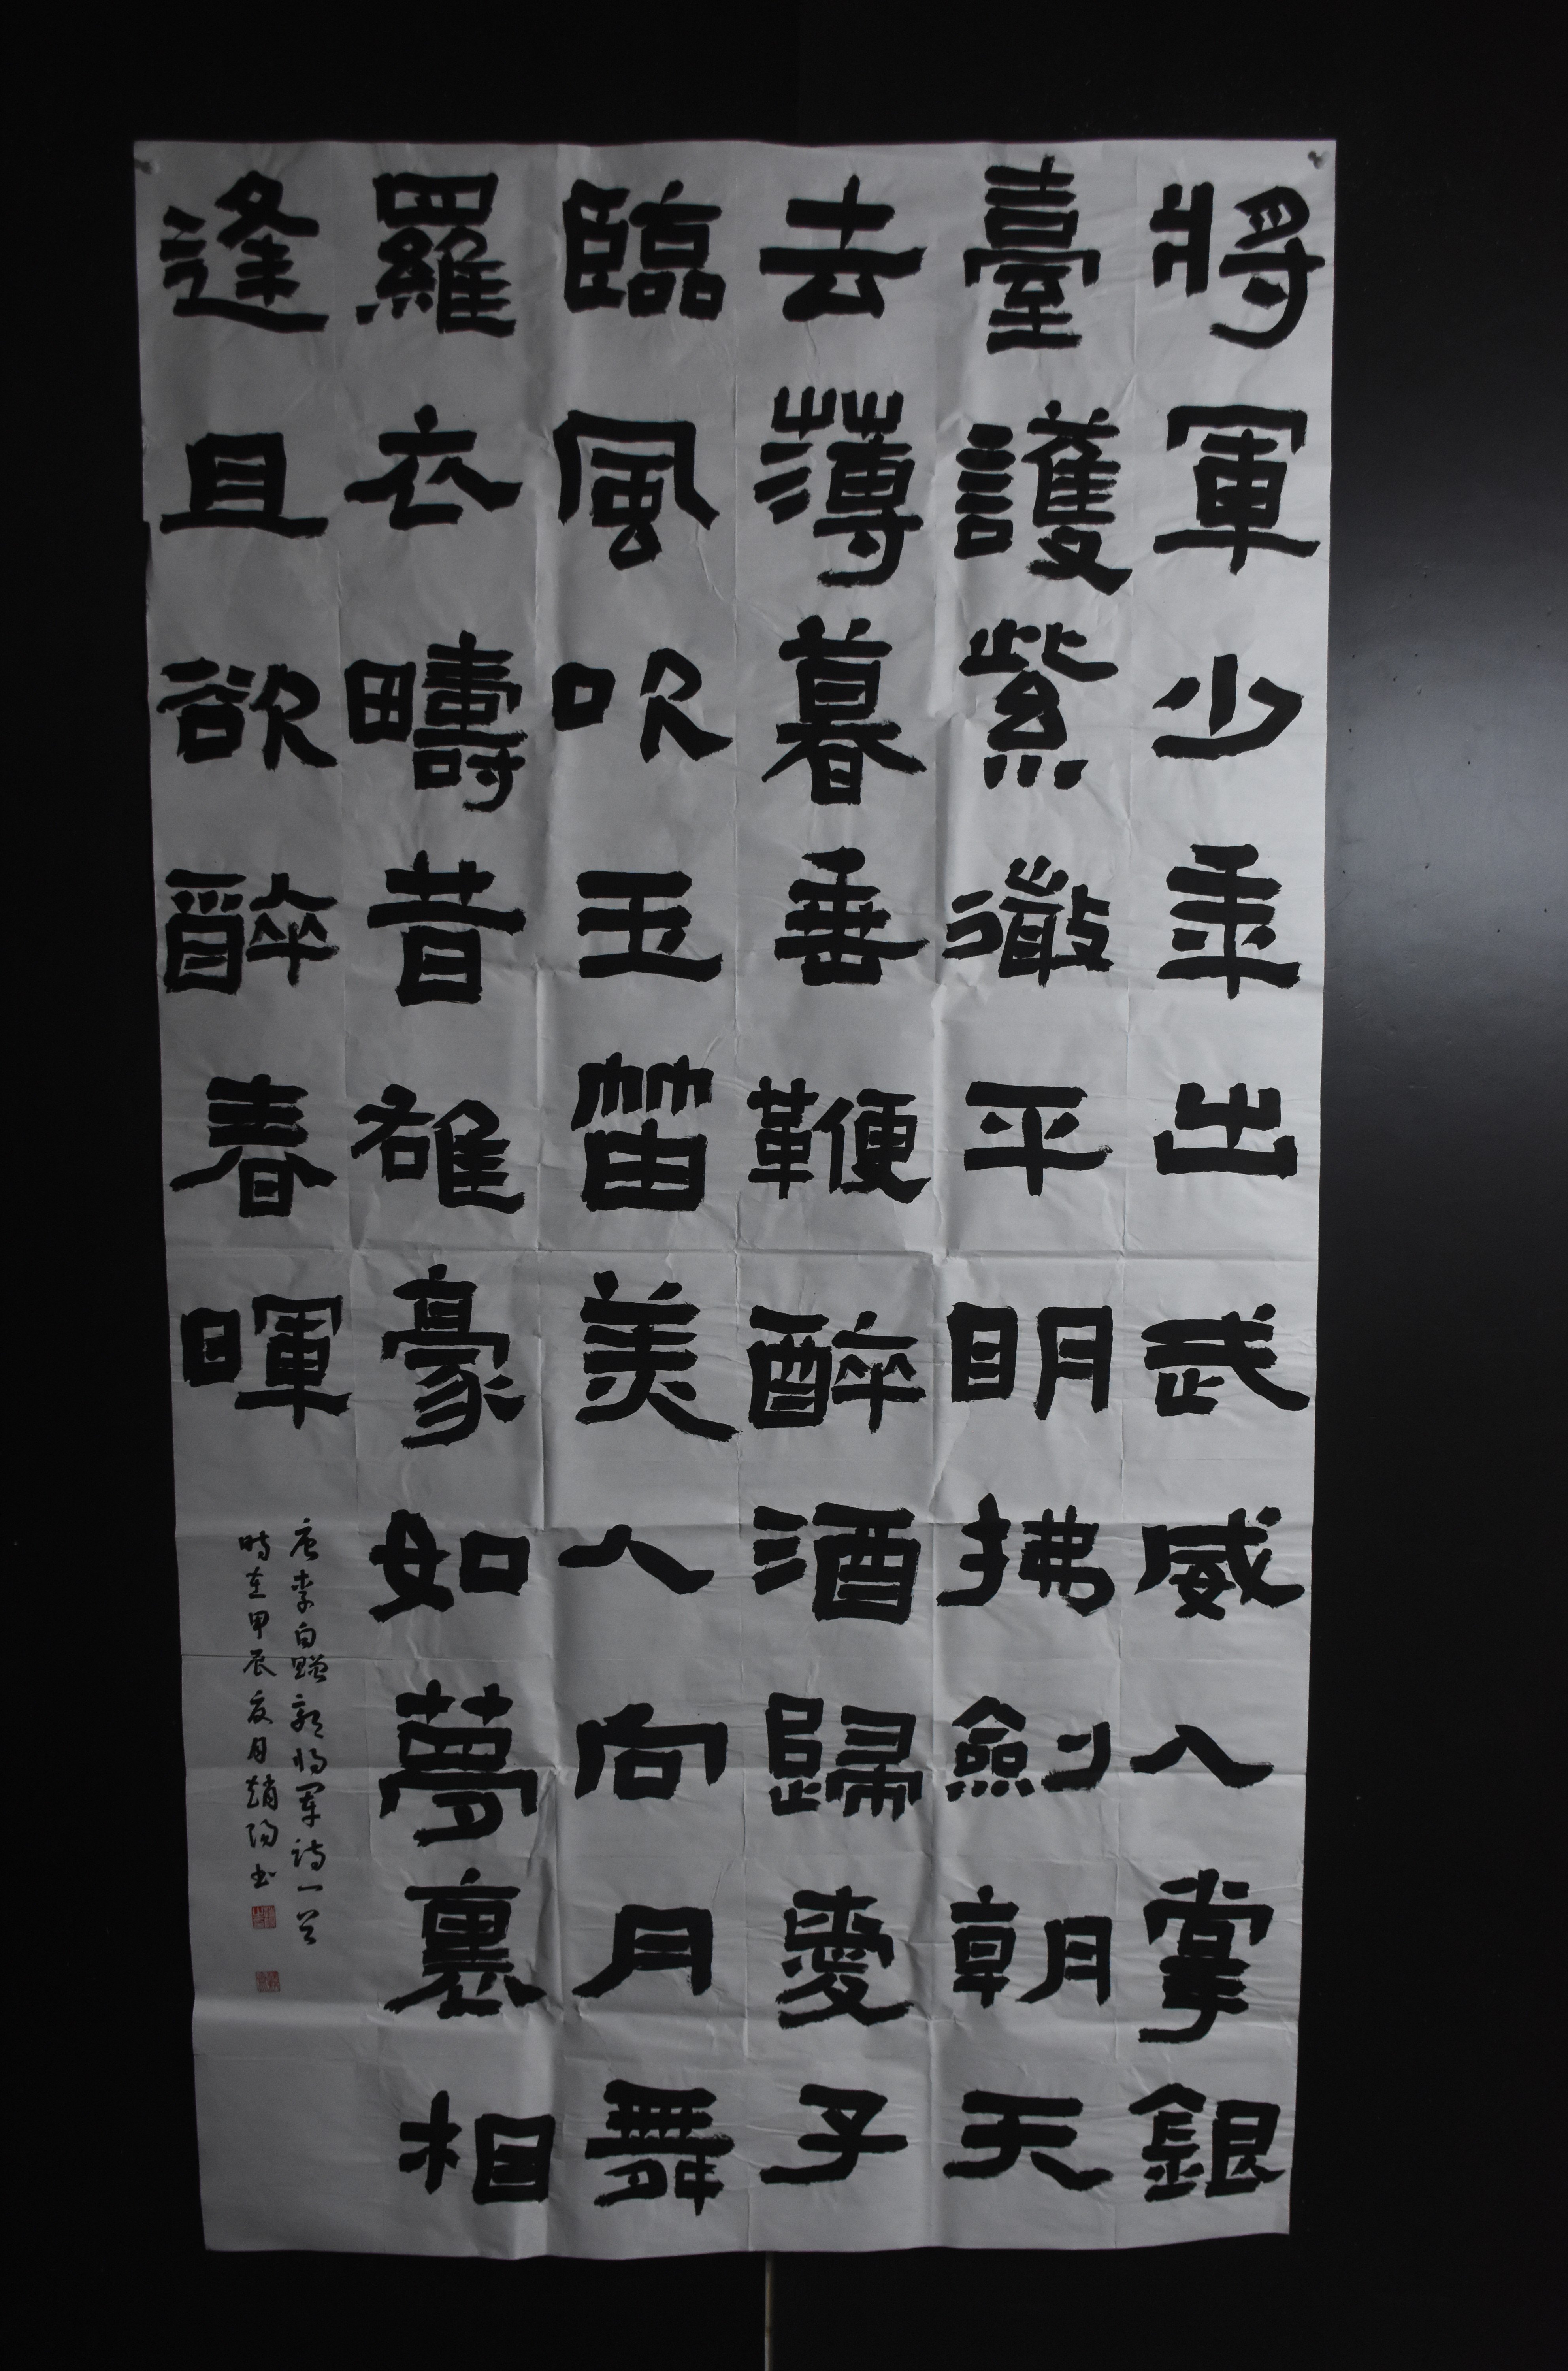 將軍少年出武威入掌銀
臺護紫微平明拂劍朝天
去薄暮垂鞭醉酒歸愛子
臨風吹玉笛美人向月舞
羅衣疇昔雄豪如夢裏相
逢且欲醉春暉
唐李白贈郭將軍詩一首
時在甲辰夏月趙陽書